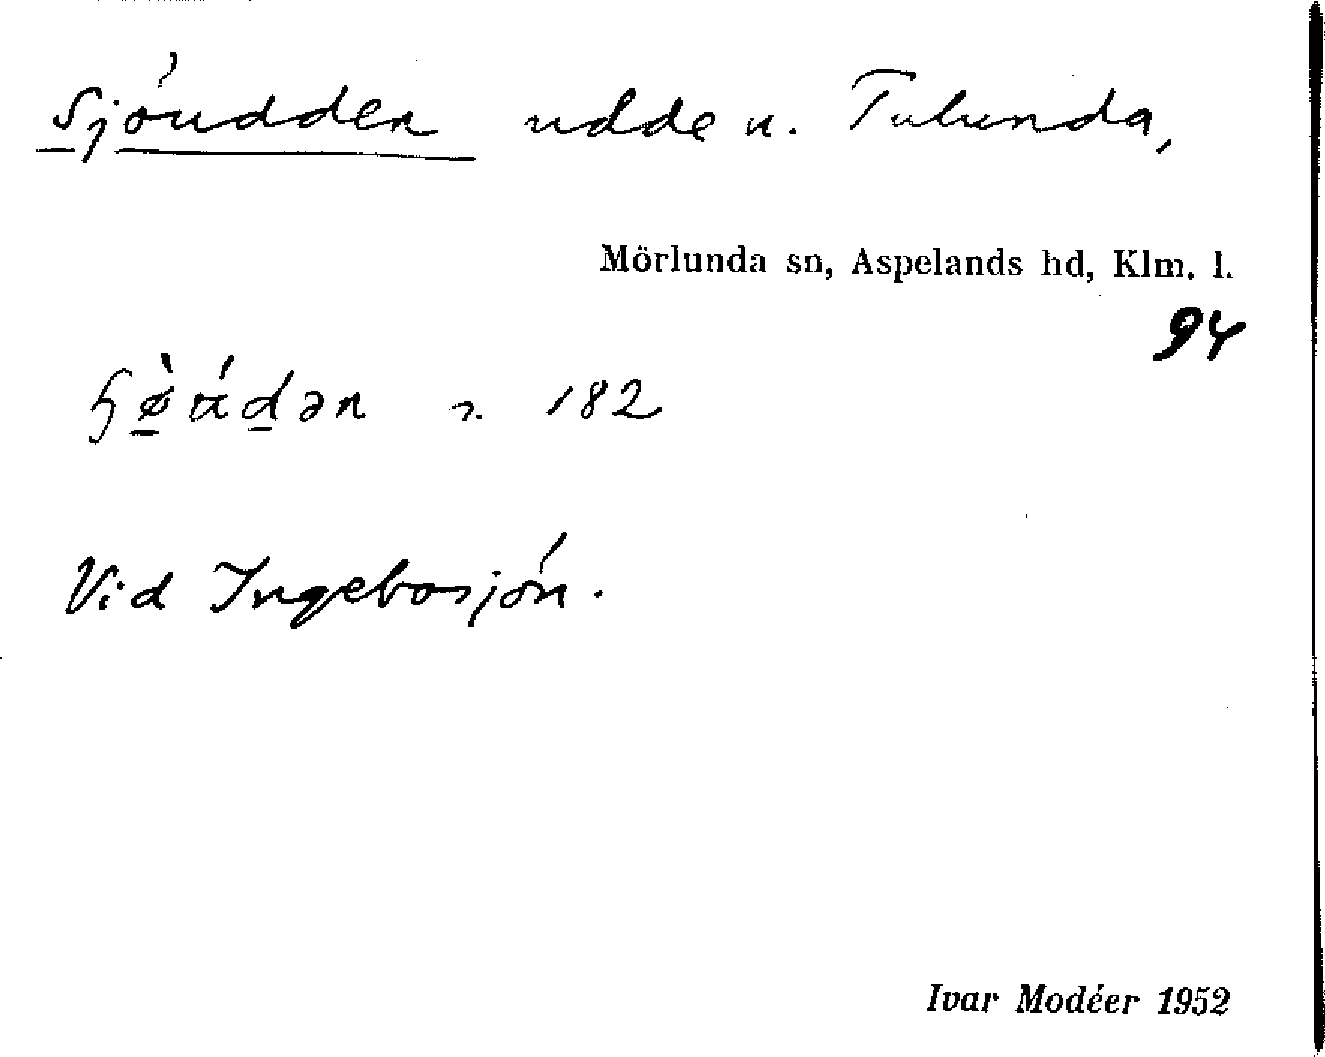 Sjöudden udde n. Tulunda,
Mörlunda sn, Aspelands hd, Klm. l.
94
182
Vid Ingebosjön.
Ivar Modéer 1952